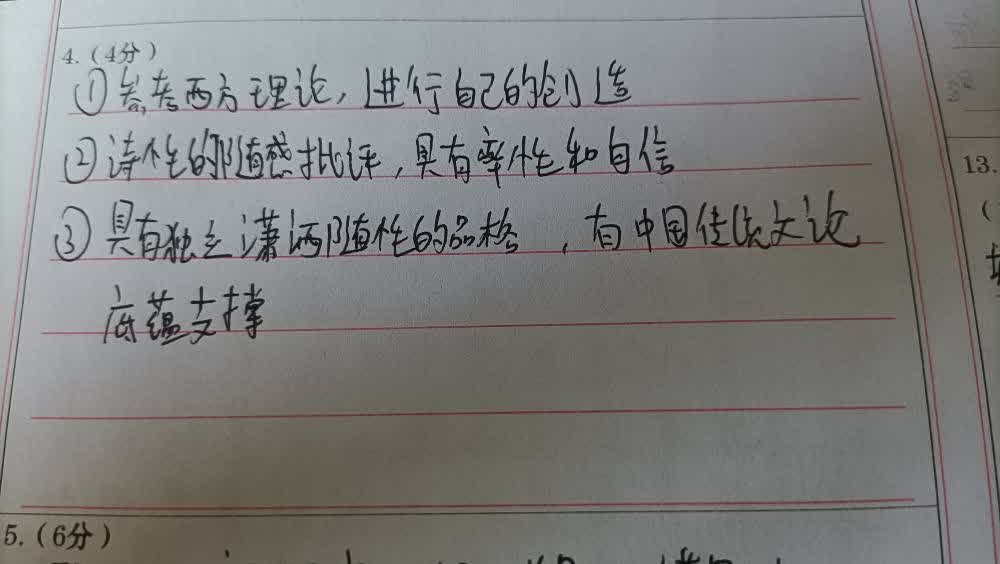 4.(4分)
①参考西方理论,进行自己的创造
②诗性的随感批评,具有率性和自信
③具有独立潇洒随性的品格,有中国传统文论
底蕴支撑
13.
(
5.(6分)